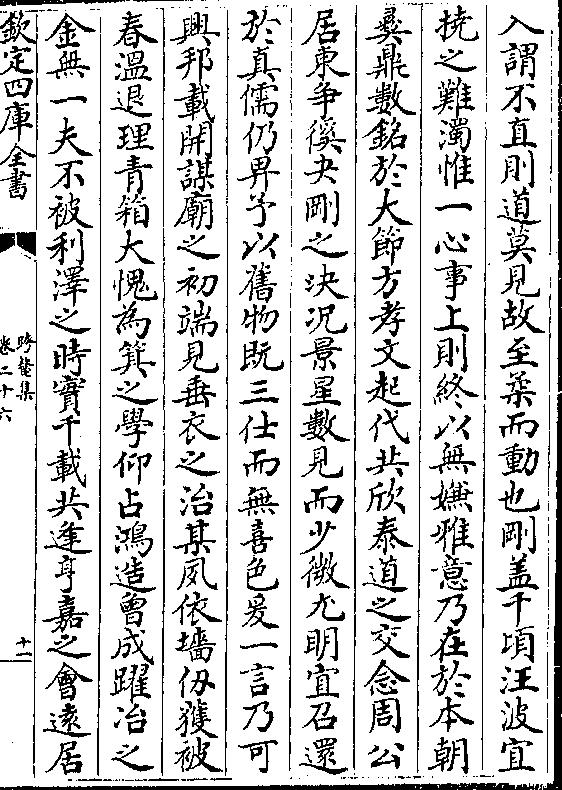 入謂不直則道莫見故至柔而動也剛盖千頃汪波宜
撓之難濁惟一心事上則終以無嫌雅意乃在於本朝
彛鼎數銘於大節方孝文起代共欣泰道之交念周公
居東争徯夬剛之決况景星數見而少微尤明宜召還
於真儒仍畀予以舊物既三仕而無喜色爰一言乃可
興邦載開謀廟之初端見垂衣之治某夙依墻仭獲被
春溫退理青箱大愧為箕之學仰占鴻造曾成躍冶之
金無一夫不被利澤之時實千載共逢亨嘉之會遠居
欽定四庫全書
卷二十六
十一